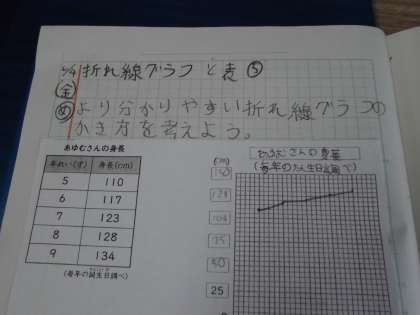 折れ線グラフと表⑤
金
め より分かりやすい折れ線グラフの
かき方を考えよう。
あゆむさんの身長
年れい(才) 身長(cm)
5 110
6 117
7 123
8 128
9 134
(毎年の誕生日調べ)
(cm)
あゆむさんの身長
(毎年のたん生日調べ)
150
125
100
75
50
25